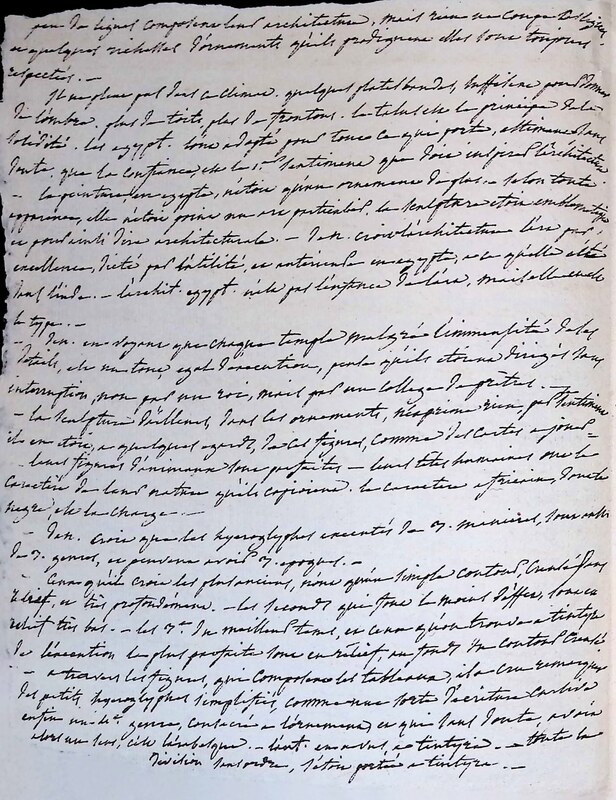 peu de lignes composent leur architecture, mais rien ne coupe les lignes,
et quelques richesses d'ornements qu'ils prodiguent elles sont toujours
respectées. —
Il ne pleut pas dans ce climat. quelques platebandes, suffisent pour donner
de l'ombre. plus de toits, plus de frontons. le talus est le principe de la
solidité. les egypt. l'ont adopté pour tout ce qui porte, estimant sans
doute, que la confiance est le 1er sentiment que doit inspirer l'architecture
— la peinture, en egypte, n'étoit qu'un ornement de plus. — selon toute
apparence, elle n'étoit point un art particulier. la sculpture étoit emblématique
et pour ainsi dire architecturale. — Den. croit l'architecture l'art par
excellence, dicté par l'utilité, et antérieure en egypte, à ce qu'elle etoit
dans l'inde. — l'archit. egypt. n'est pas l'enfance de l'art, mais elle en est
le type. —
— Den. en voyant que chaque temple malgré l'immensité de ses
détails, est un tout, egal d'execution, pense qu'ils etoient dirigés sans
interruption, non par un roi, mais par un college de prêtres. —
— la sculpture d'ailleurs, dans ces ornements, n'exprime rien, pas sentiment
il en étoit, à quelques egards, de ces figures, comme des cartes à jouer —
leurs figures d'animaux sont parfaites — leurs têtes humaines ont le
caractère de leur nature qu'ils copioient. le caractere africain, dont le
negre est la charge. —
— Den. croit que les hyeroglyphes executés de 3. manières, sont aussi
de 3. genres, et peuvent avoir 3. epoques. —
Ceux qu'il croit les plus anciens, n'ont qu'un simple contour, creusé sans
relief, et très profondément. — les seconds qui font le moins d'effet, sont en
relief très bas. — les 3es du meilleur tems, et ceux qu'on trouve à tintyra
de l'execution la plus parfaite sont en relief, au fond du contour creusé
— à travers les figures, qui composent les tableaux, il a cru remarquer
des petits hyeroglyphes simplifiés, comme une sorte d'ecriture cursive
enfin un 4e. genre, consacré à l'ornement, et qui sans doute, avoit
alors un sens, est l'arabesque. — l'ant. en a vus, à tintyra. — toute la
division sans ordre, s'étoit portée à tintyra. —